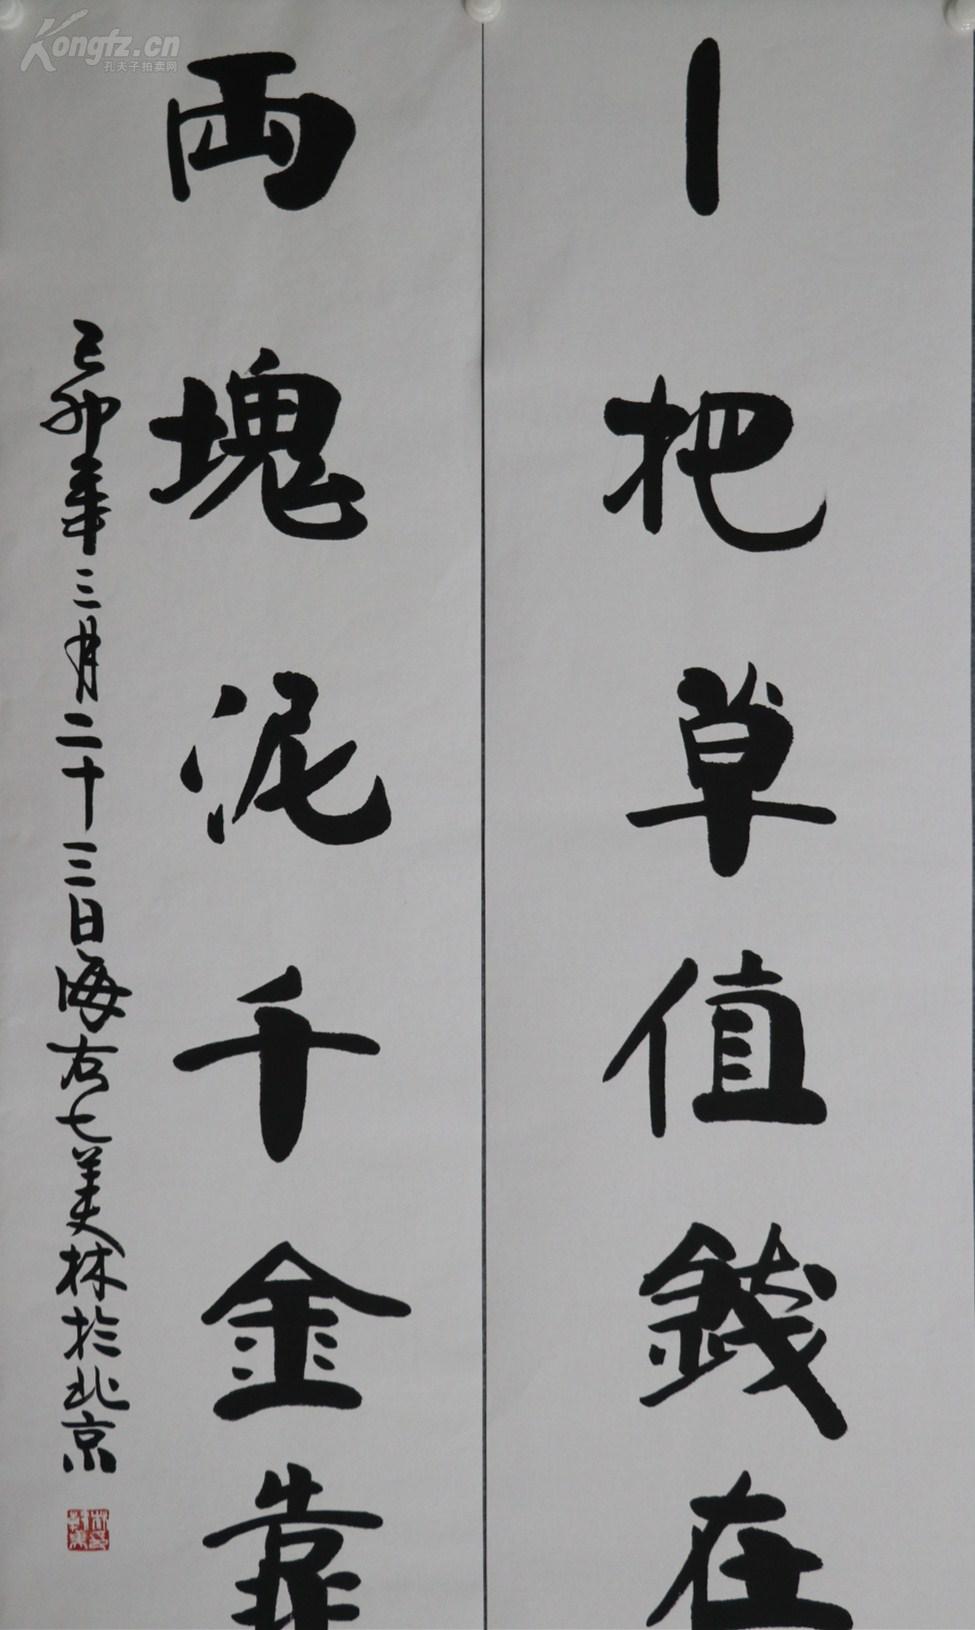 一把草值錢在
兩塊泥千金靠
己卯年三月二十三日海右七美林於北京
Kongfz.cn
孔夫子拍卖网